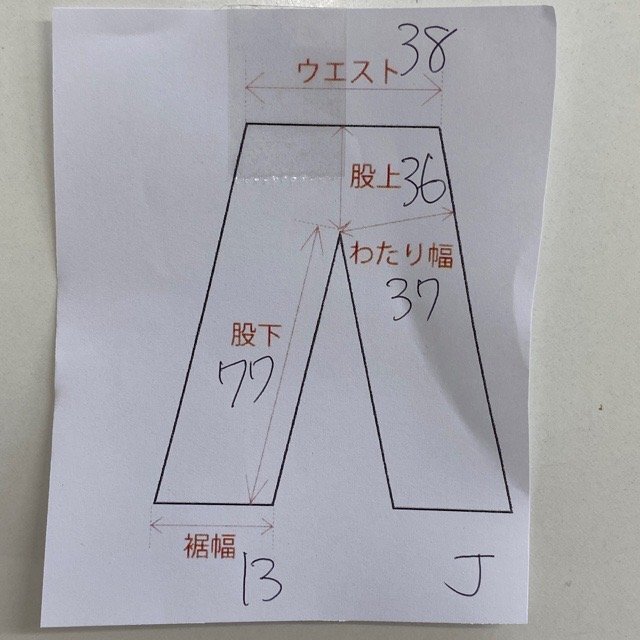 ウエスト38
股上36
わたり幅
37
股下
77
裾幅
13
J